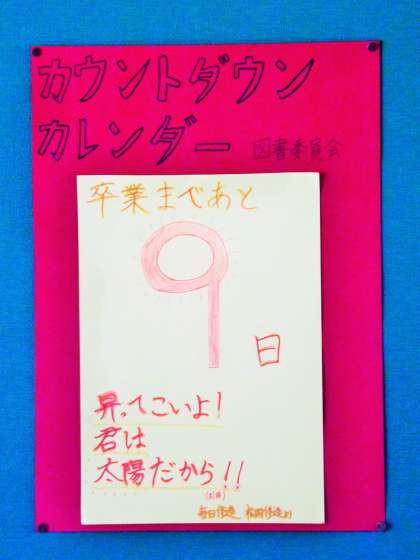 カウントダウン
カレンダー 図書委員会
卒業まであと
9
日
昇ってこいよ!
君は
太陽だから!!
毎日修造 松岡修造より